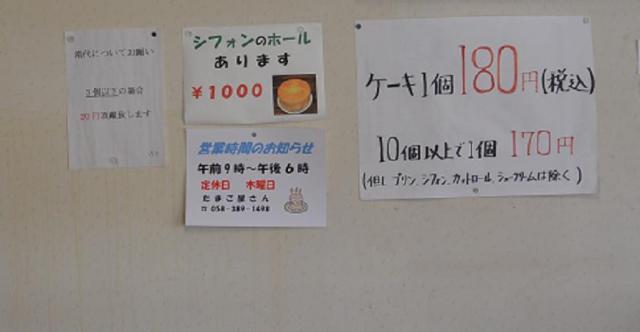 箱代についてお願い
3個以下の場合
20円頂戴致します
シフォンのホール
あります
¥1000
営業時間のお知らせ
午前9時～午後6時
定休日 木曜日
たまご屋さん
☎ 058-389-1498
ケーキ1個180円(税込)
10個以上で1個 170円
(但し プリン、シフォン、カットロール、シュークリームは除く)